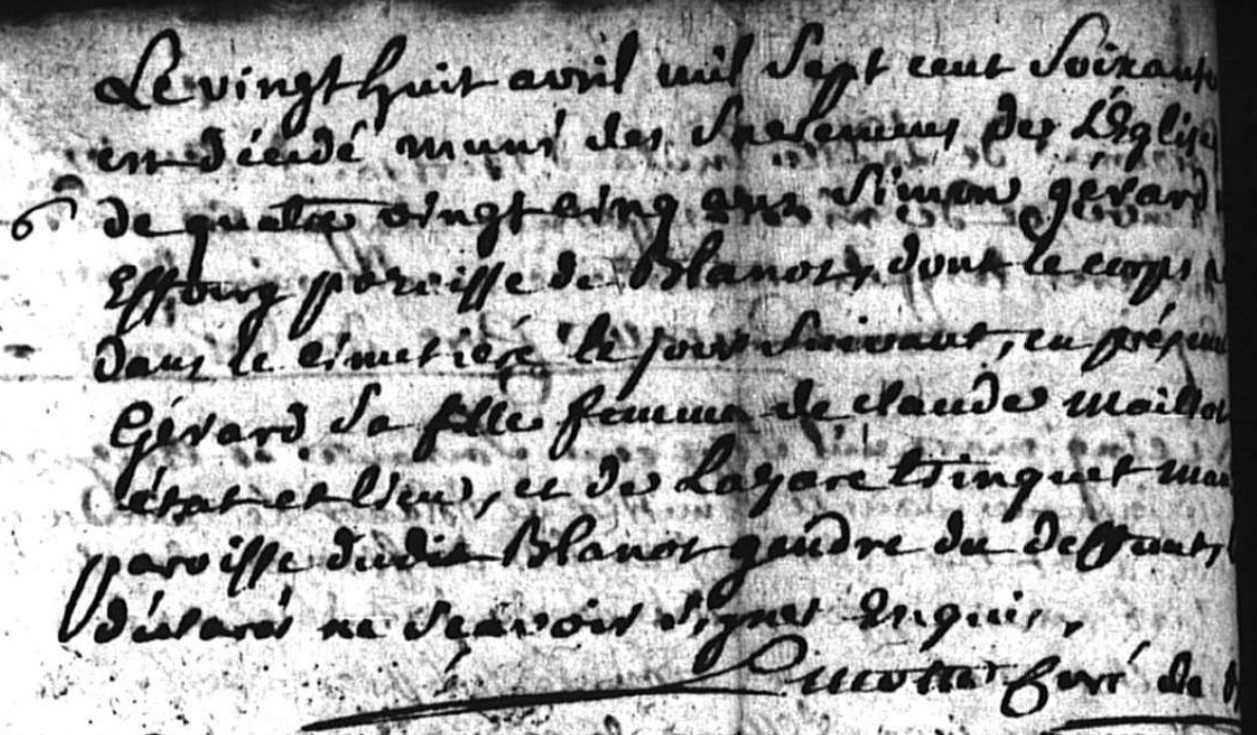 Le vingt huit avril mil sept cent soixante
est décédé muni des Sacremens de L'Eglise
de quatre vingt cinq ans Simon gérard
paroisse de Blanot, dont le corps a
dans le cimetiére le jour suivant, en présen
Gérard sa fille femme de claude maillot
état et lieu, et de Lazare trinquet man
paroisse dudit Blanot gendre du deffunt,
déclarés ne sçavoir signer Enquis,
Curé de